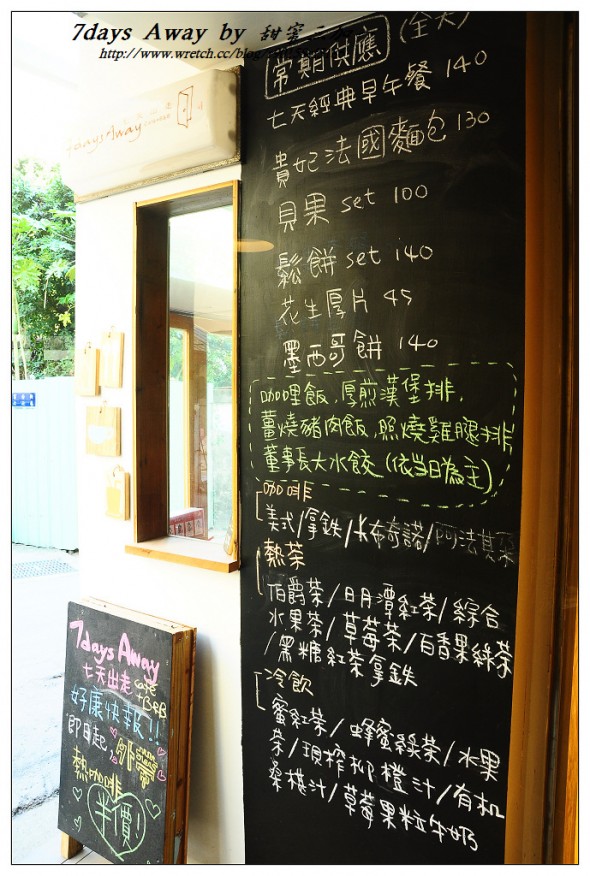 7days Away by 甜蜜
http://www.wretch.cc/blog/
7days Away
常期供應 (全天)
七天經典早午餐 140
貴妃法國麵包 130
貝果 set 100
鬆餅 set 140
花生厚片 45
墨西哥餅 140
咖哩飯,厚煎漢堡排,
薑燒豬肉飯,照燒雞腿排
董事長大水餃 (依當日為主)
咖啡
美式/拿鐵/卡布奇諾/阿法其朵
熱茶
伯爵茶/日月潭紅茶/綜合
水果茶/草莓茶/百香果綠茶
/黑糖紅茶拿鐵
冷飲
蜜紅茶/蜂蜜綠茶/水果
茶/現榨柳橙汁/有机
桑椹汁/草莓果粒牛奶
7days Away
七天出走
好康快報!!
即日起,外帶
熱咖啡
半價!